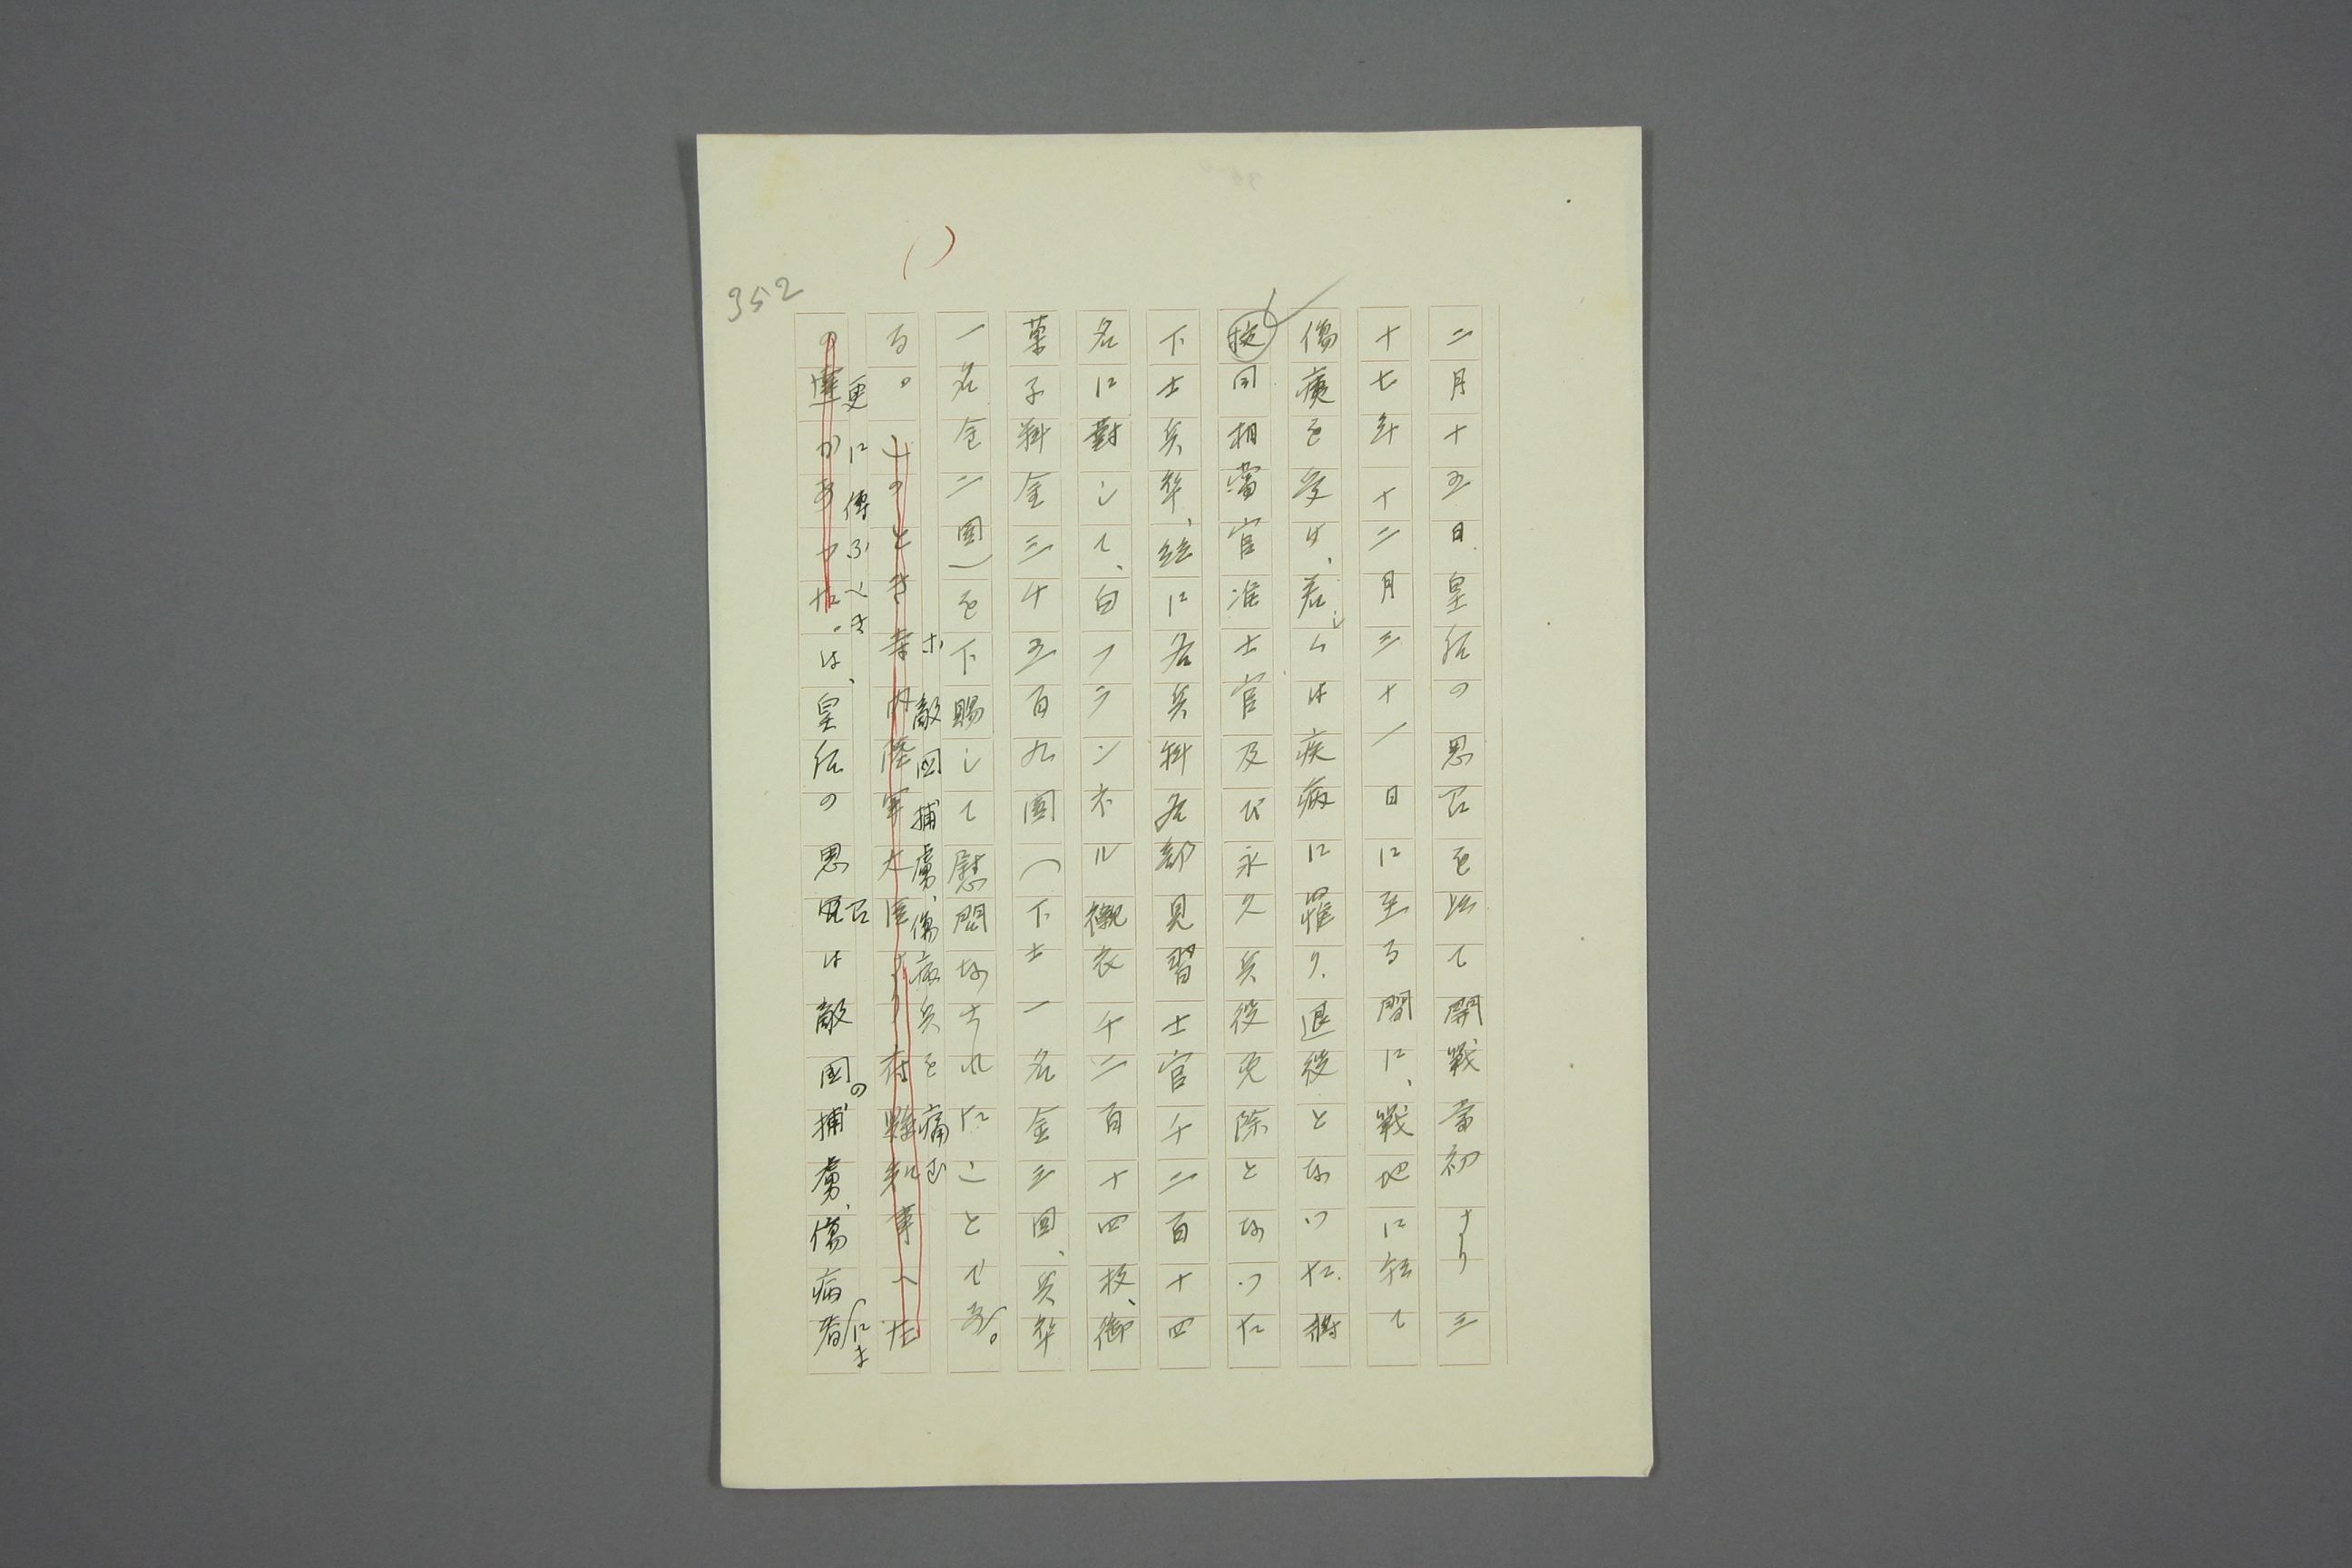 352
二月十五日皇后の思召を以て開戰當初より三
十七年十二月三十一日に至る間に、戰地に於て
傷痍を受け、若しくは疾病に罹り、退役となつた將
校同相當官准士官及び永久兵役免除となつた
下士兵卒、並に各兵科各部見習士官千二百十四
名に對して、白フランネル襯衣千二百十四枚、御
菓子料金三千五百九圓（下士一名金三圓、兵卒
一名金二圓）を下賜して慰問なされたことであ
る。そのとき寺内陸軍大臣より府縣知事へ左
敵國捕虜、傷病兵を痛む
の達があつた。は、皇后の思召は敵國の捕虜、傷病者にま
更に傳ふべき